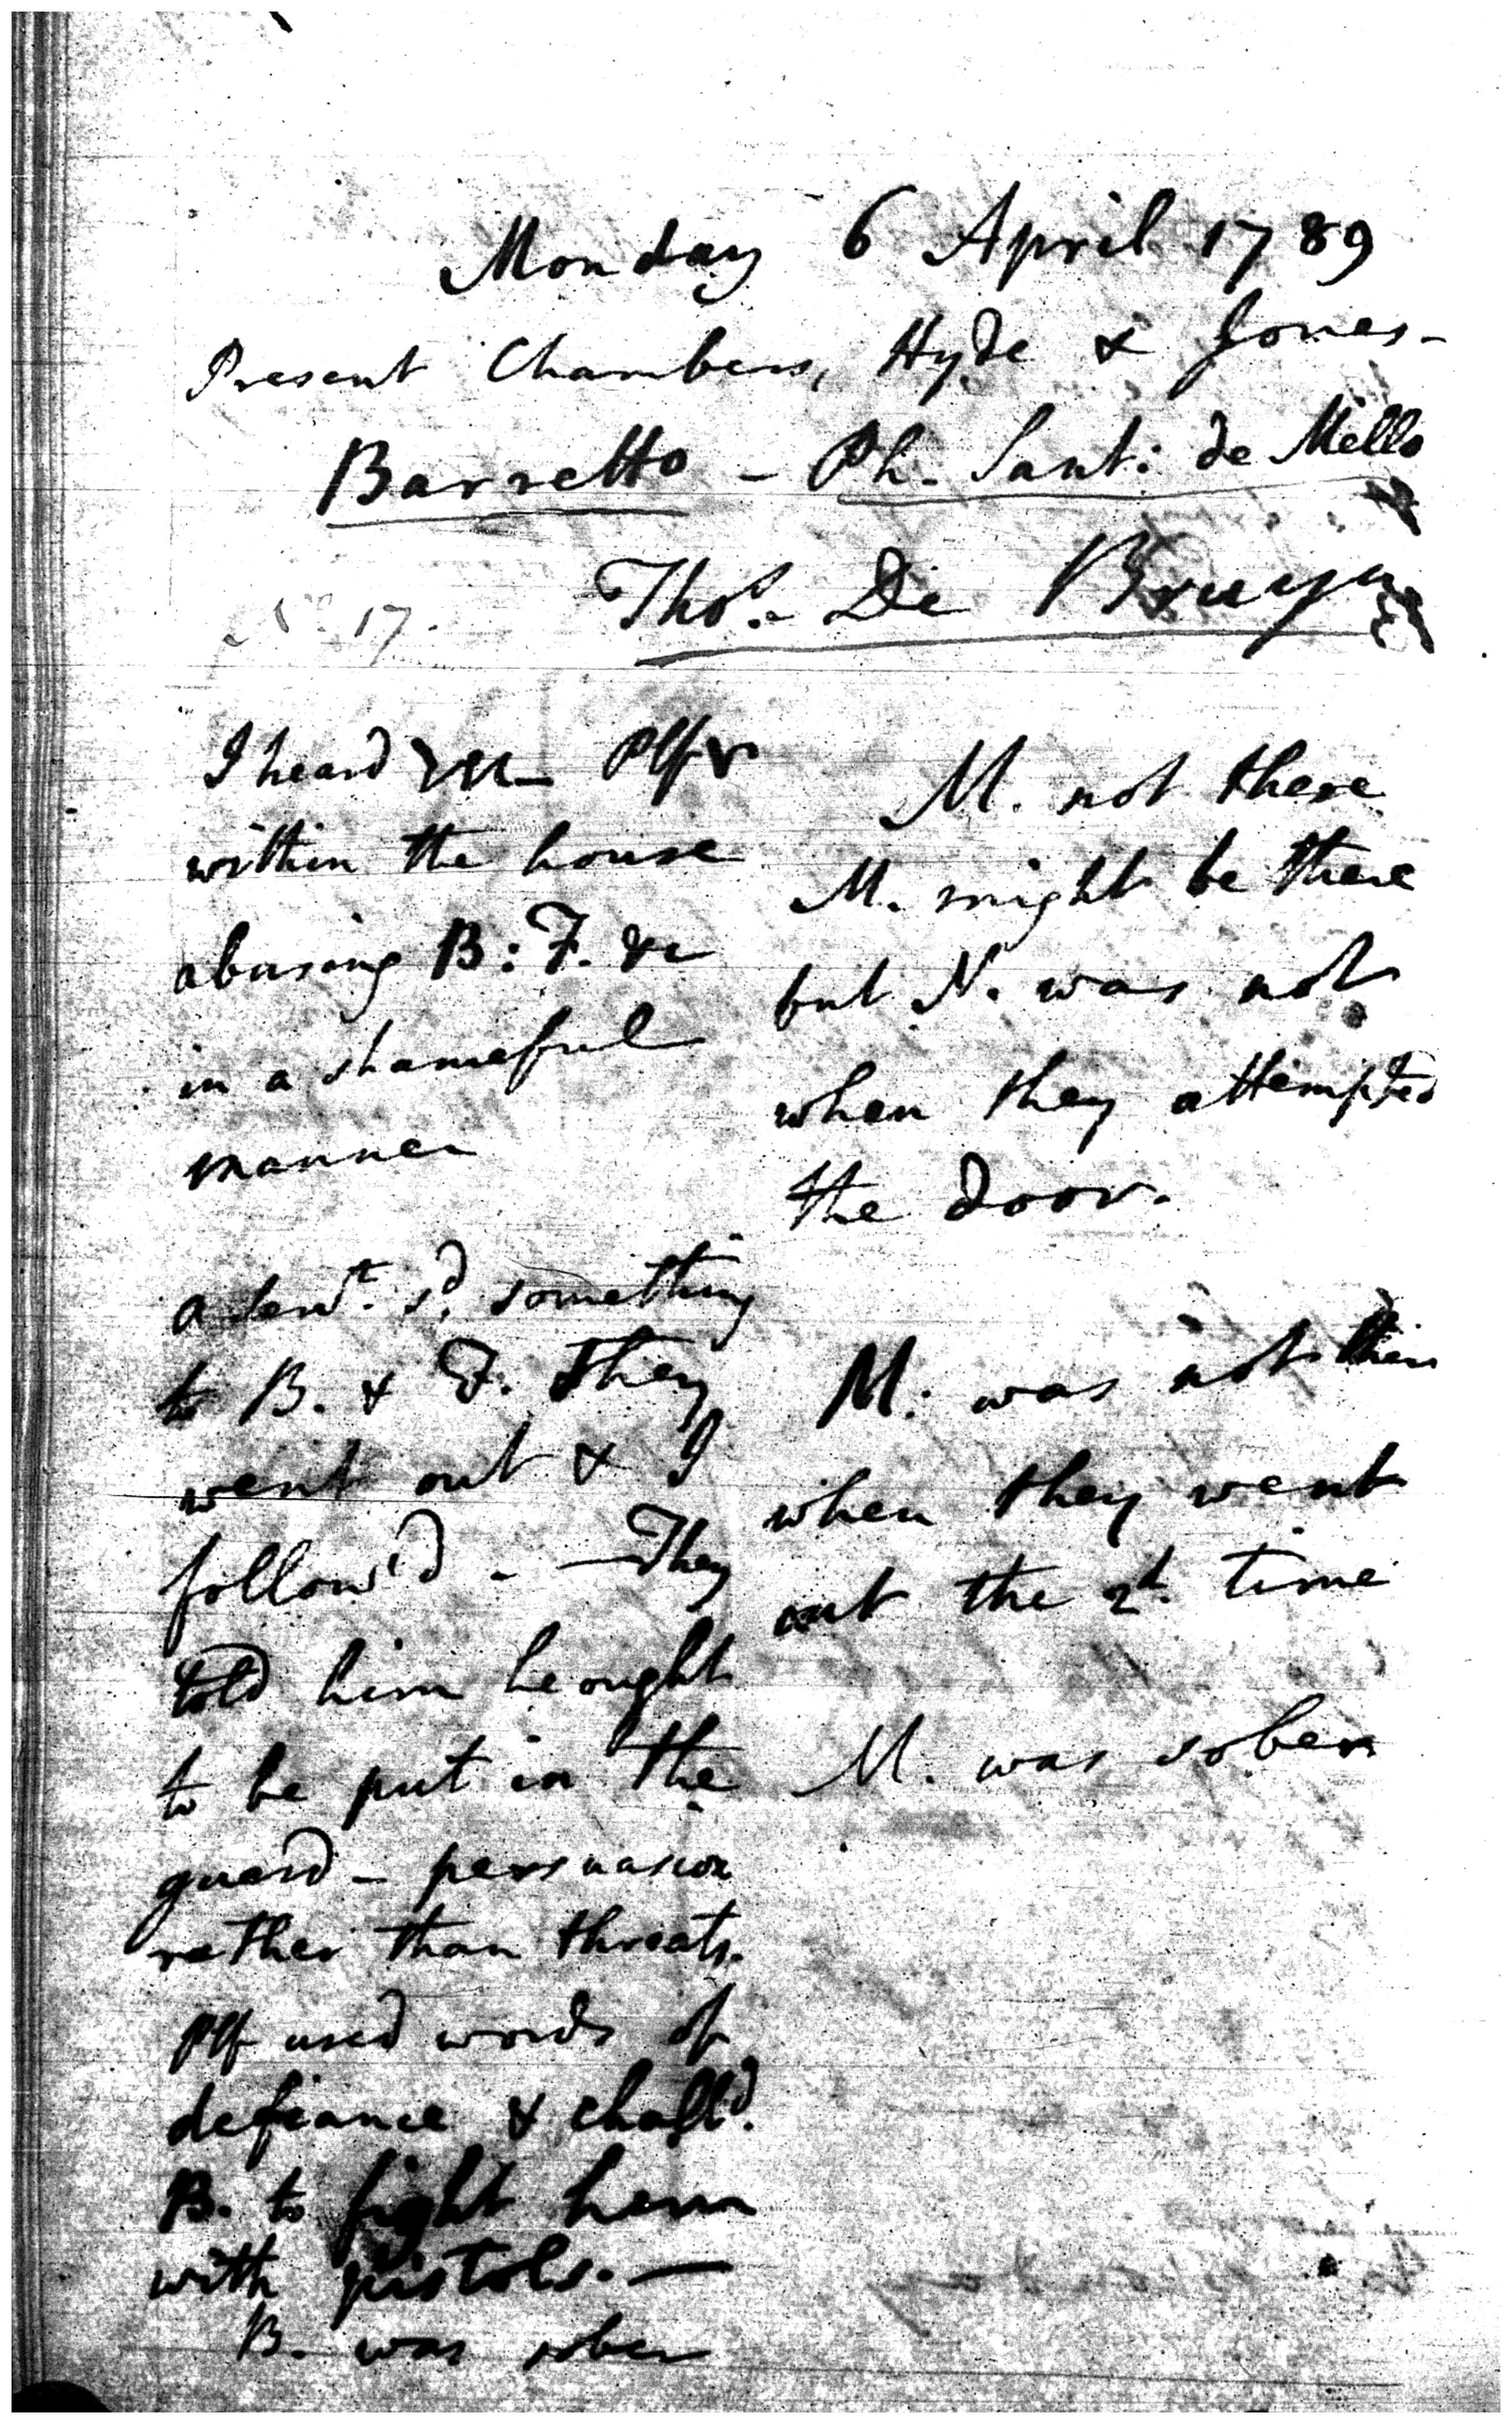 Monday 6 April 1789
Present Chambers, Hyde & Jones-
Barretto - Ph. Sant: de Mello
Thos. De Bruyn
No. 17.
I heard Plf
within the house
abusing B: F. &c
in a shameful
manner
a servt. sd. something
to B. & F. They
went out & I
follow'd - They
told him he ought
to be put in the
guard - persuasion
rather than threats.
Plf used words of
defiance & challd.
B. to fight him
with pistols. —
B. was sober
M. not there
M. might be there
but N. was not
when they attempted
the door.
M: was not
when they went
out the 2d. time
M. was sober